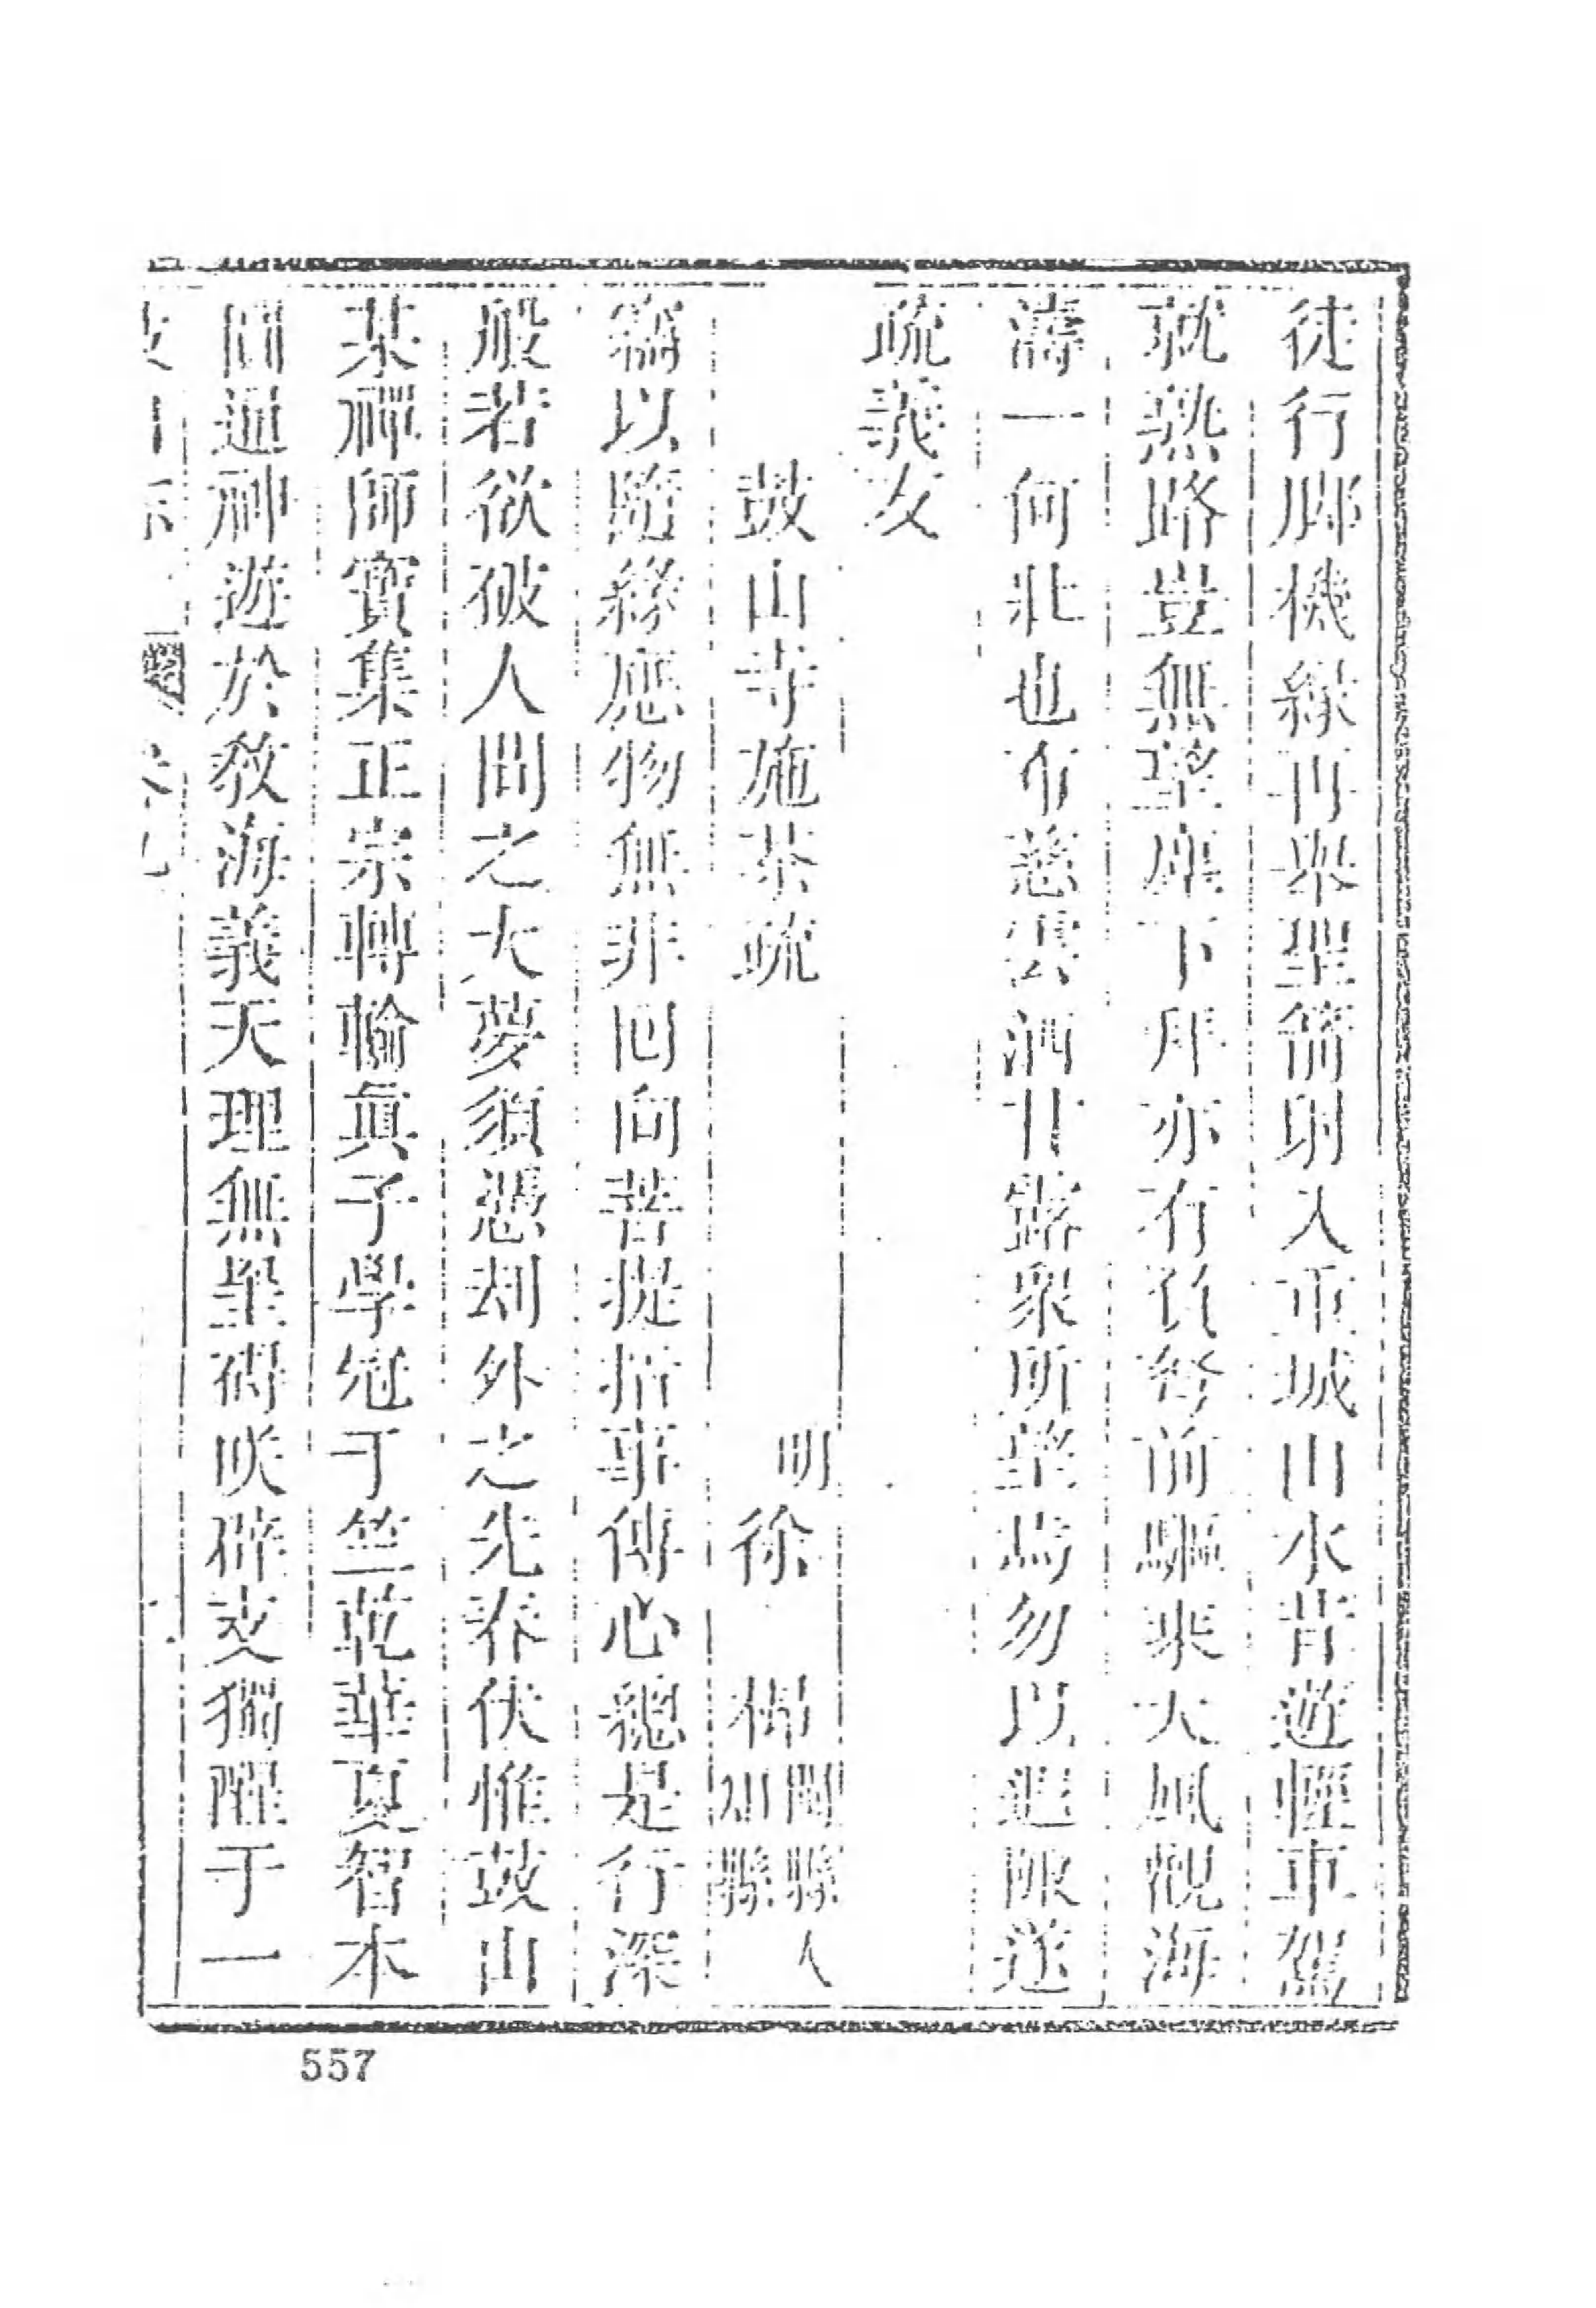 徒行脚機緣再舉聖箭明入重城山水昔遊輕車駕
就熟路豈無望塵下拜亦有負弩前驅乘大風觀海
濤一何壯也布慈雲洒甘露衆所望焉勿以遐陬遂
疏義攵
鼓山寺施茶疏
明徐𤊹閩縣人
竊以隨緣應物無非回向菩提指事傳心總是行深
般若欲破人間之大夢須憑刼外之先春伏惟鼓山
某禪師寶集正宗轉輪真子學冠于竺乾華夏智本
圓通神遊於敎海義天理無罣碍咲辟支獨醒于一
557